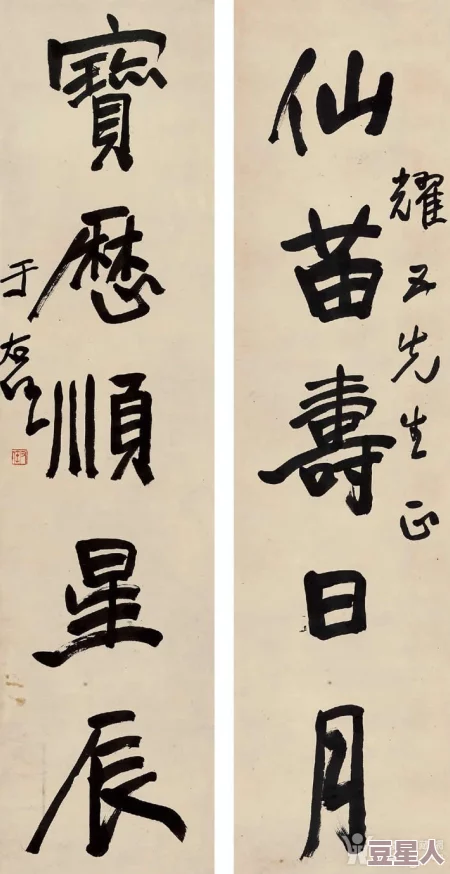 仙苗壽日月
耀五先生正
寶歷順星辰
于右任
豆星人